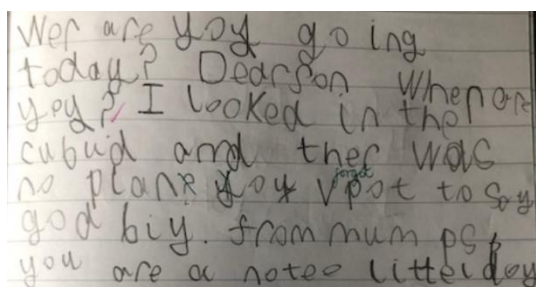 Wer are yoy going
today? Dearson When are
yoy? I looked in the
cubud and ther was
no plane yoy to say
god biy. from mum ps
you are a litter